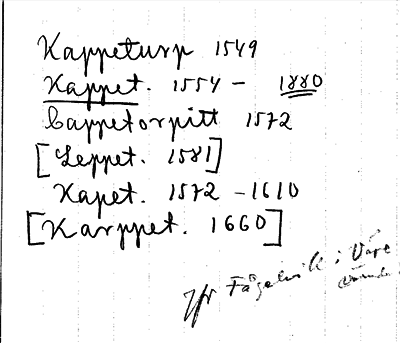 Kappeturp 1549
Kappet. 1554 – 1880
Cappetorpitt 1572
[Leppet. 1581]
Kapet. 1572 – 1610
[Karppet. 1660]
Jfr Fågelvik i Våre